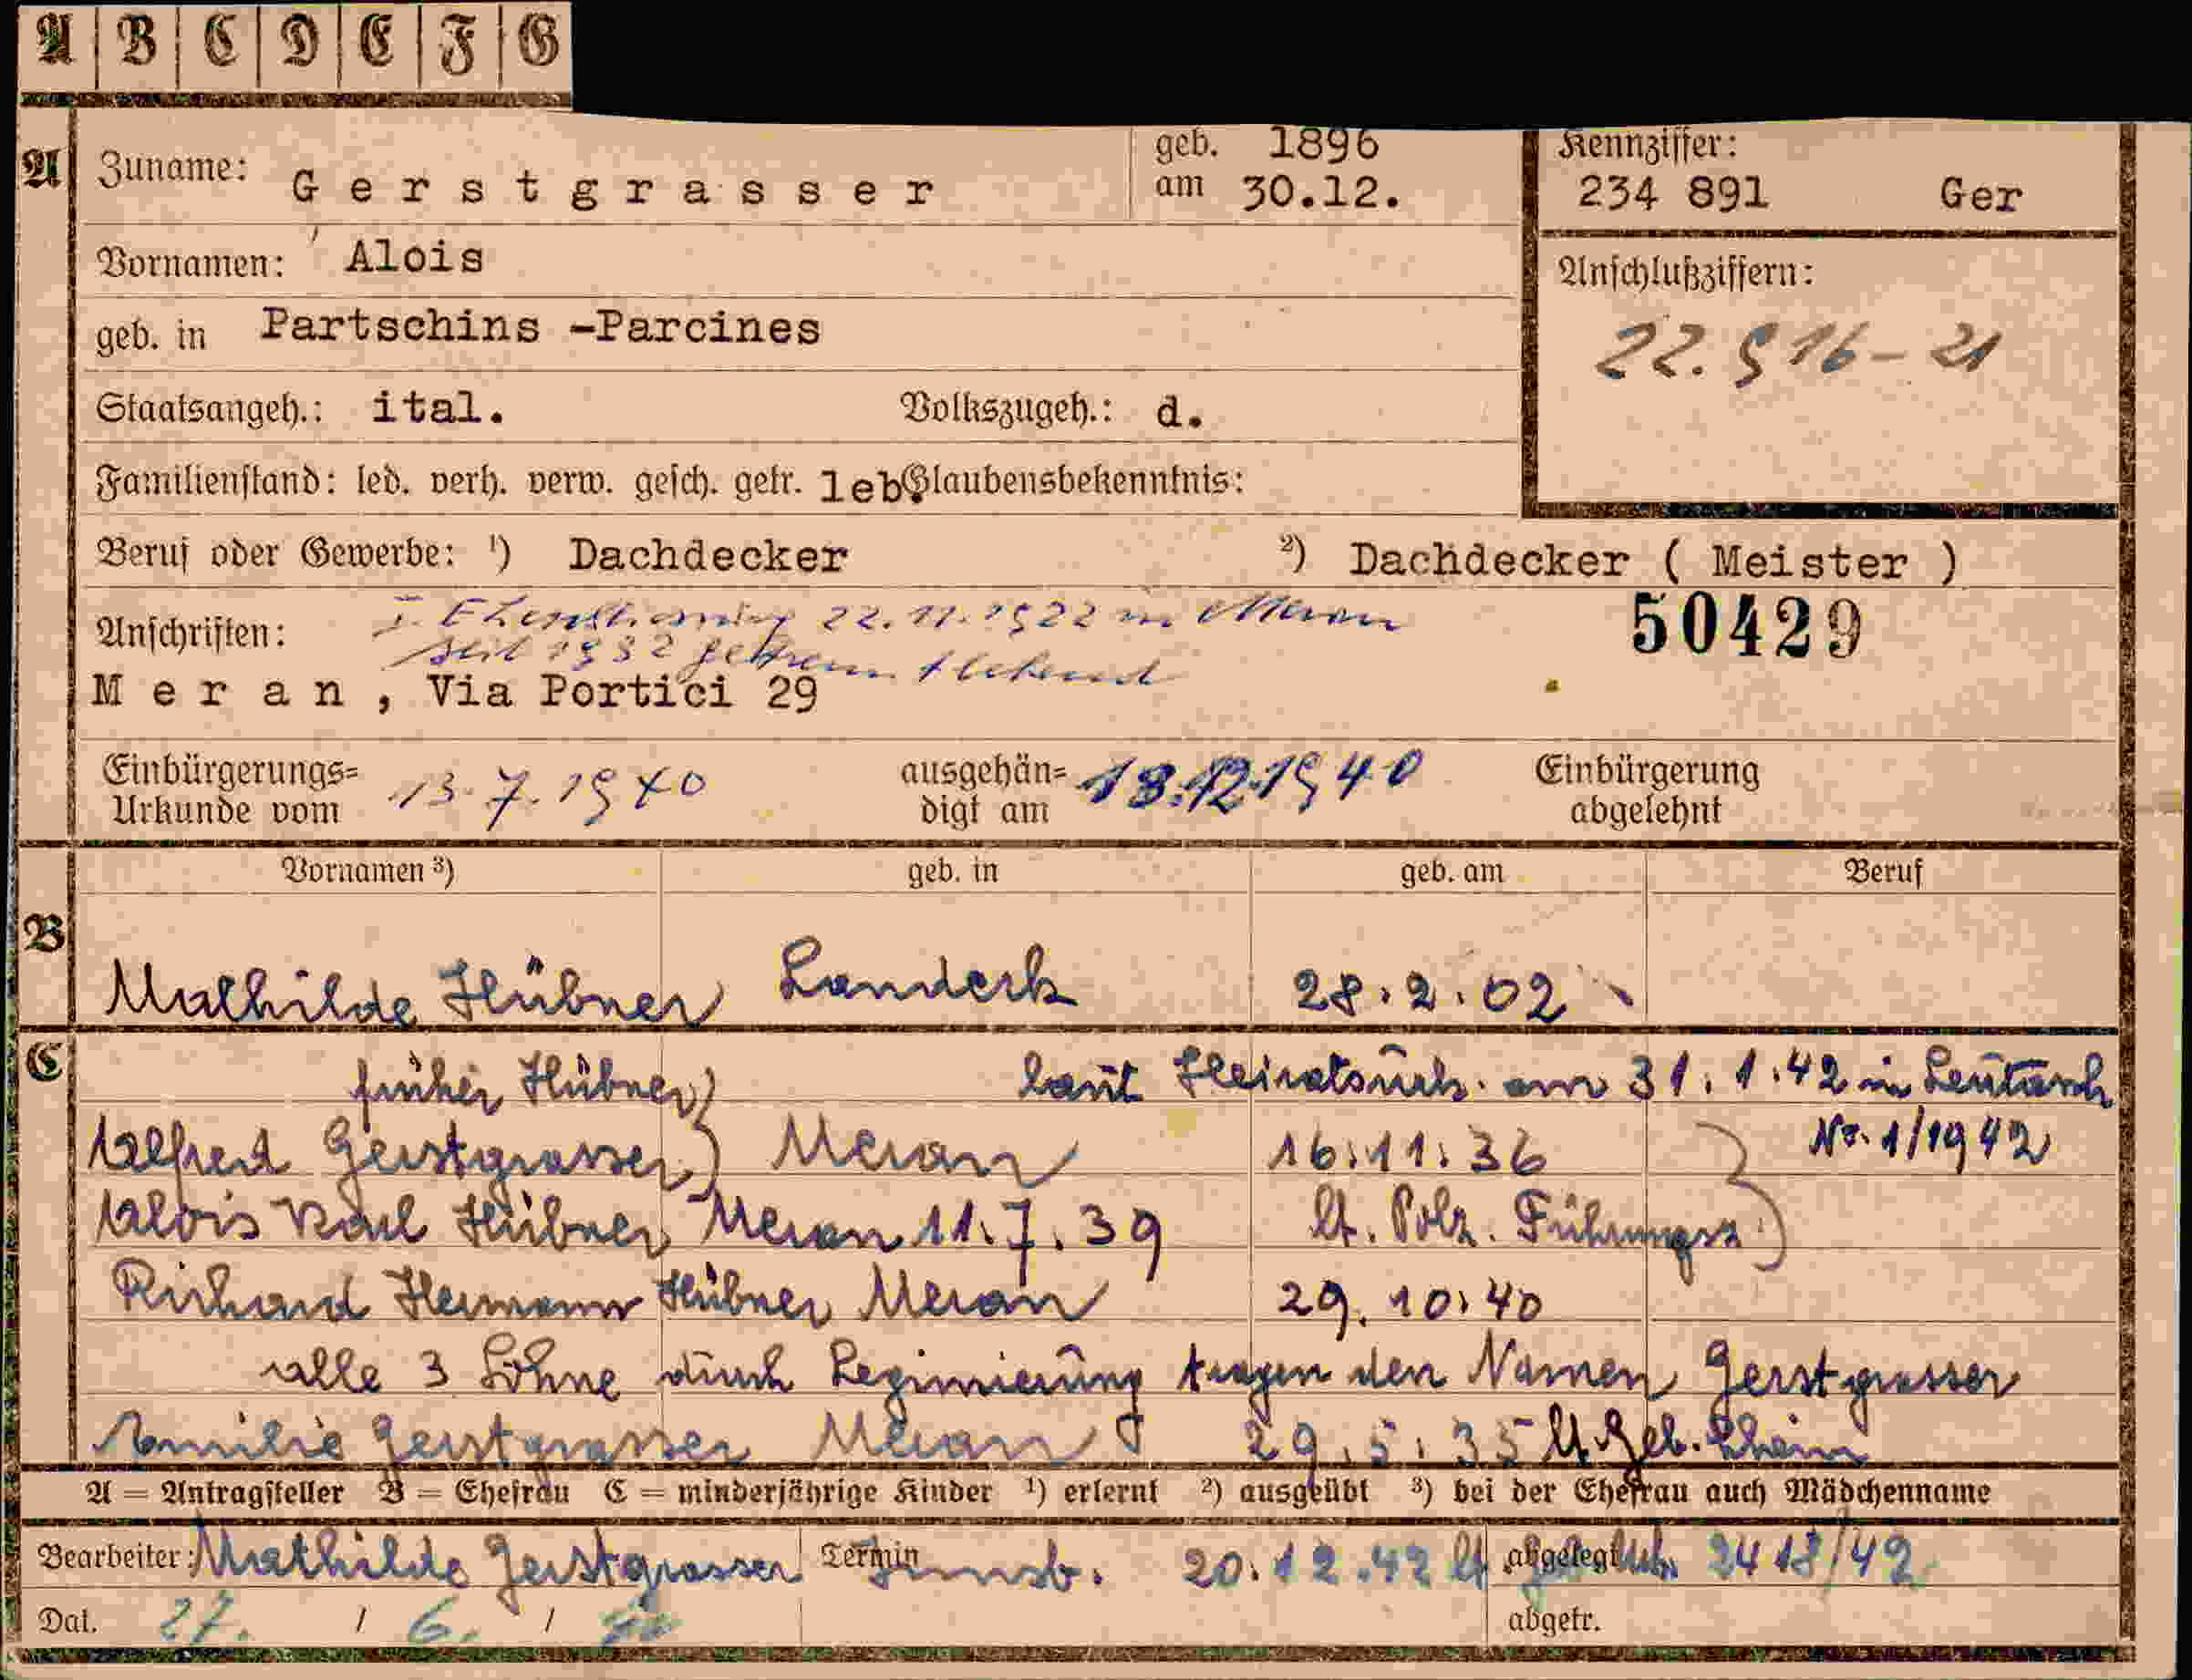 A B C D E F G
A Zuname: Gerstgrasser geb. 1896 am 30.12. Kennziffer: 234 891 Ger
Vornamen: Alois
Anschlußziffern:
22.916-21
geb. in Partschins -Parcines
Staatsangeh.: ital. Volkszugeh.: d.
Familienstand: led. verh. verw. gesch. getr. leb Glaubensbekenntnis:
Beruf oder Gewerbe: 1) Dachdecker 2) Dachdecker ( Meister )
Anschriften: I. 22.11.1922 in Meran 50429
seit 1932 getrennt lebend
Meran, Via Portici 29
Einbürgerungs=Urkunde vom 13.7.1940 ausgehän=digt am 13.12.1940 Einbürgerung abgelehnt
Vornamen 3) geb. in geb. am Beruf
B Mathilde Hübner Landeck 28.2.02
C früher Hübner) laut Heiratsurk. am 31.1.42 in Leutasch
Alfred Gerstgrasser) Meran 16.11.36 No. 1/1942
Alois Karl Hübner Meran 11.7.39 lt. Polz. Führungsz.
Richard Hermann Hübner Meran 29.10.40
alle 3 Söhne durch Legimierung tragen den Namen Gerstgrasser
Gerstgrasser Meran 29.5.35 lt. Geb. Schein
A = Antragsteller B = Ehefrau C = minderjährige Kinder 1) erlernt 2) ausgeübt 3) bei der Ehefrau auch Mädchenname
Bearbeiter: Mathilde Gerstgrasser Termin Innsb. 20.12.42 lt abgelegt 2418/42
Dat. 27. / 6. / 40 abgetr.